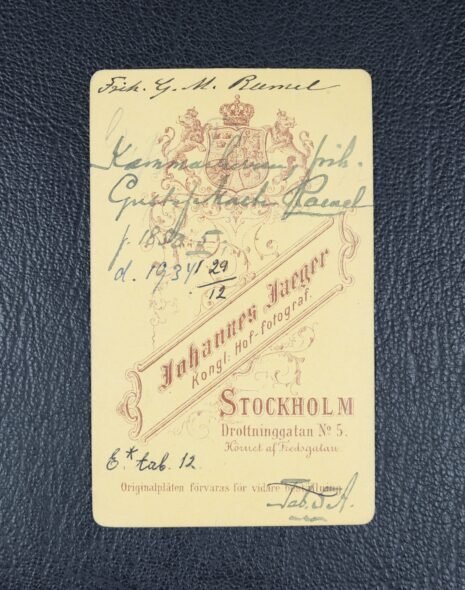 Frih. G. M. Rumel
Kammarherren, frih.
f. 1850
d. 1934 29/12
Johannes Jaeger
Kongl: Hof-fotograf.
STOCKHOLM
Drottninggatan No 5.
Hörnet af Fredsgatan.
E.* tab. 12.
Originalplåten förvaras för vidare beställning
Tab. 5 A.